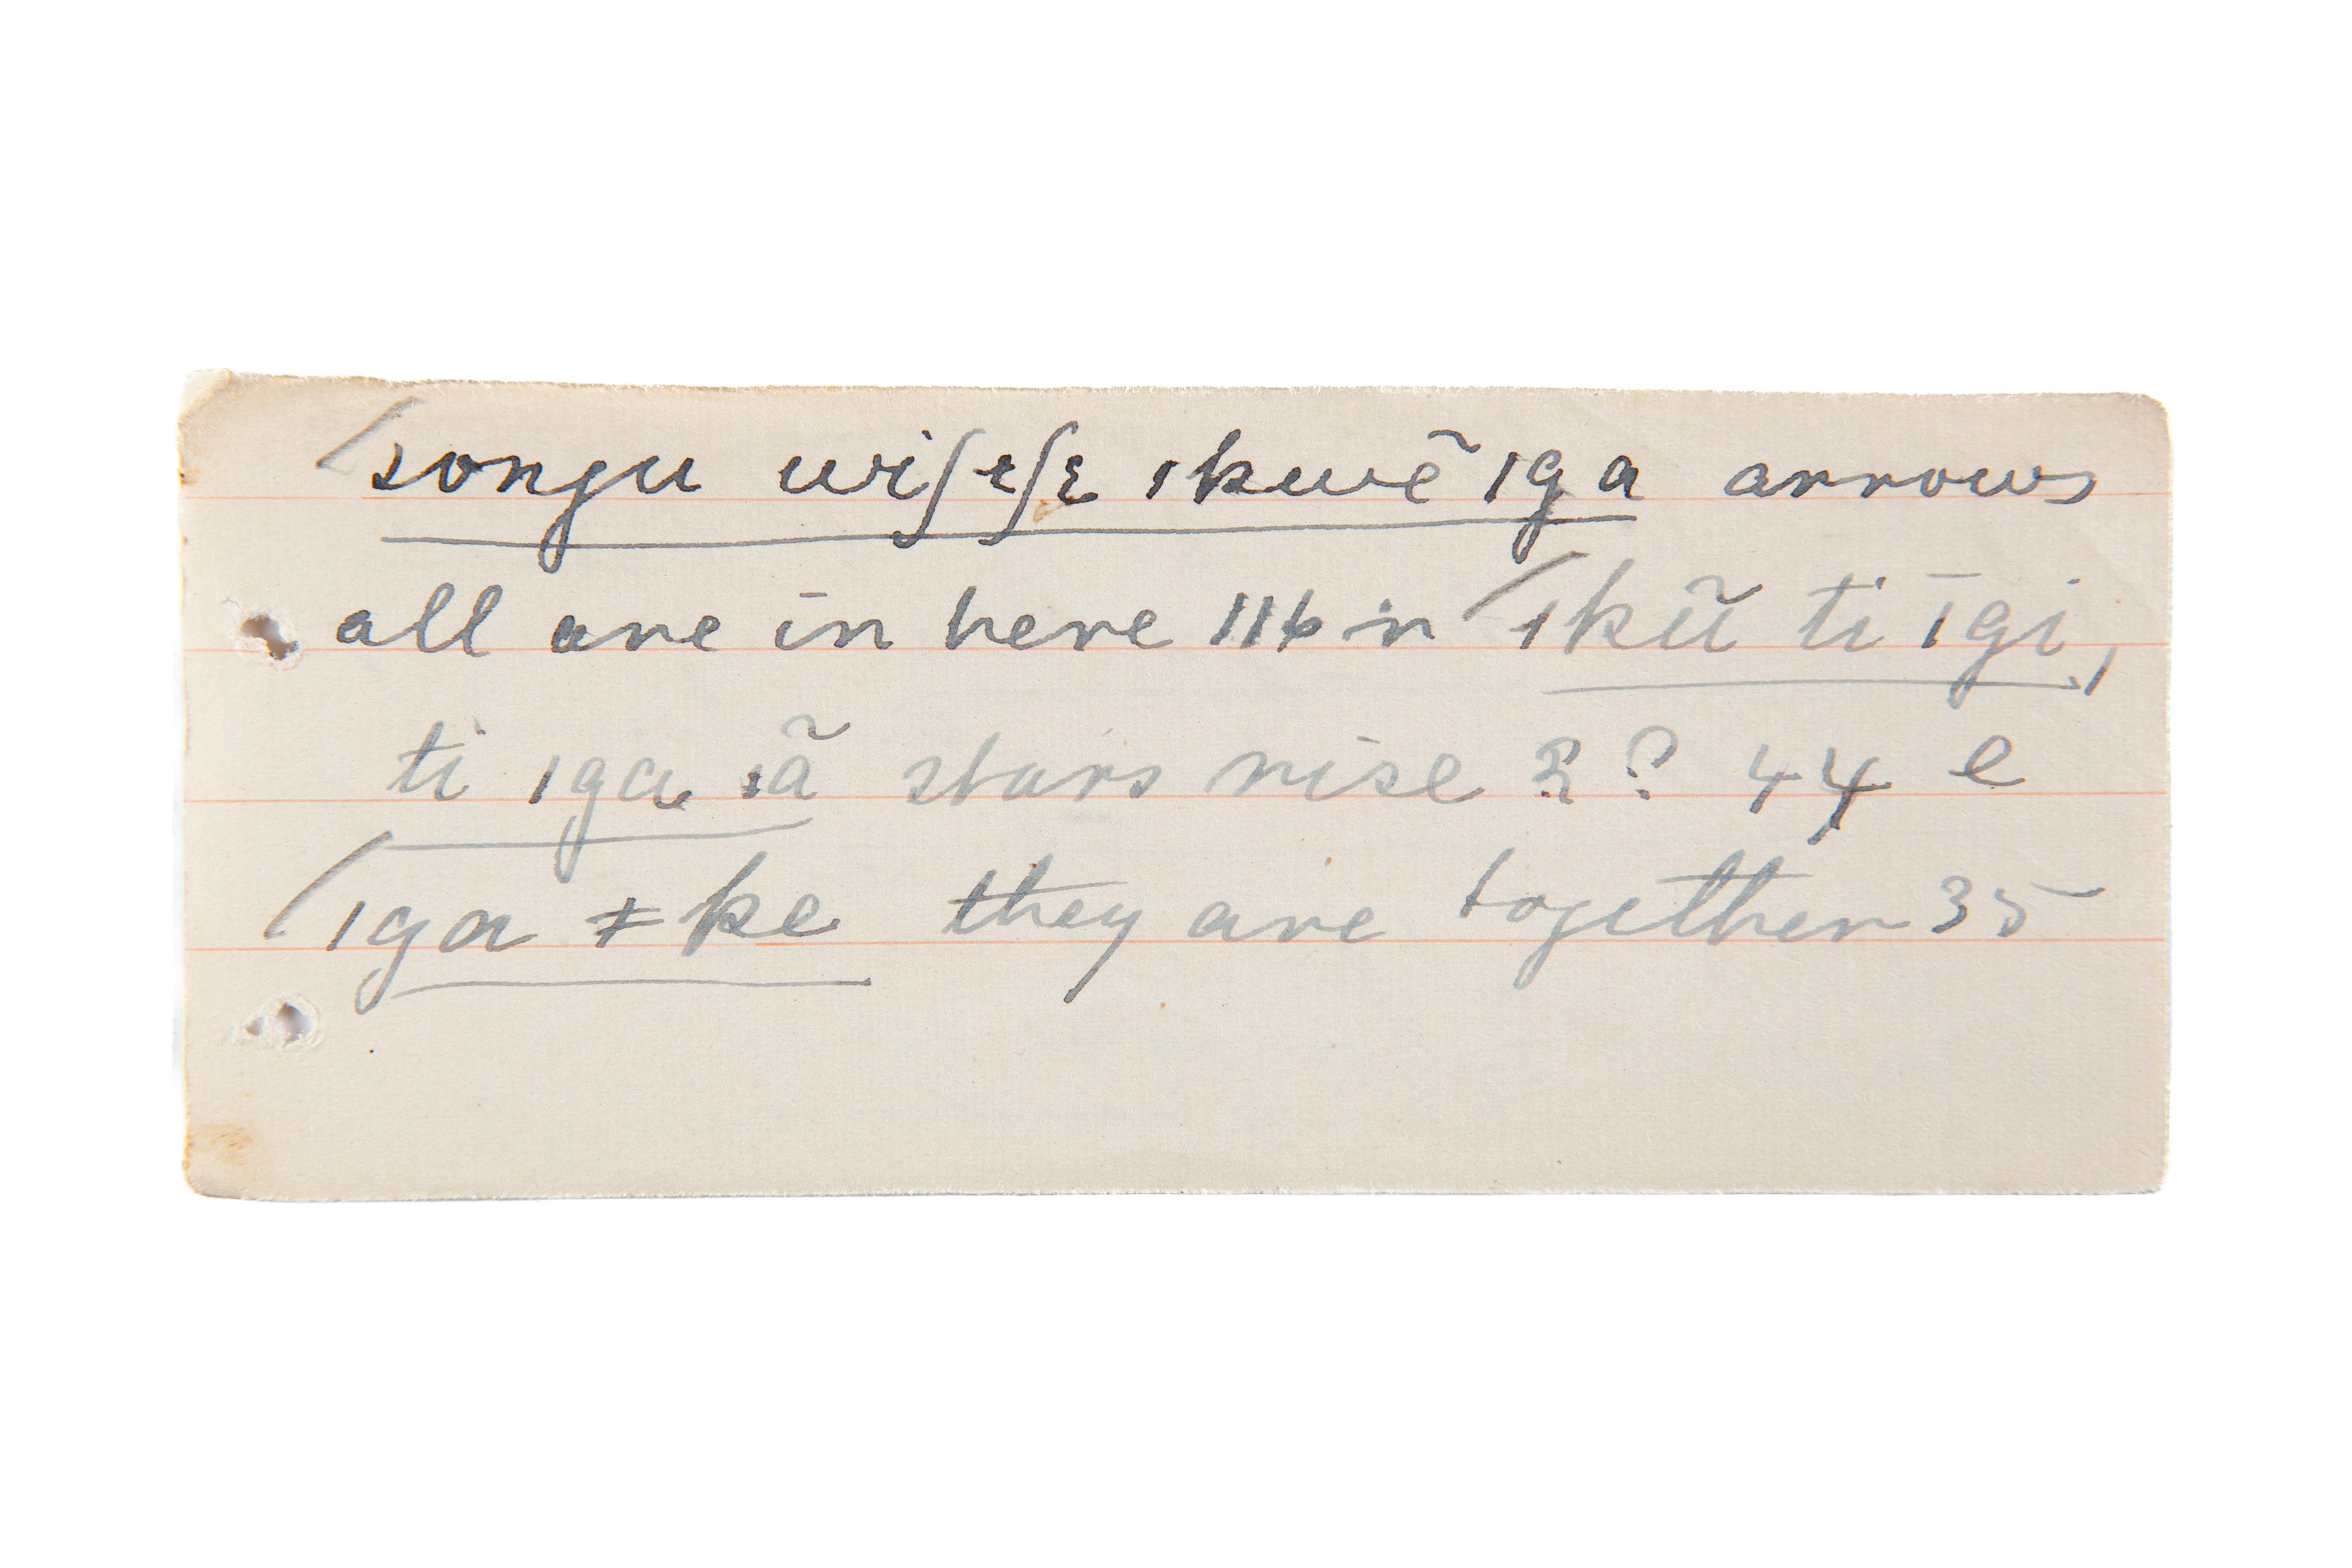 songu wiʃɛʃɛ ıkwẽ ıga arrows
all are in here 116 r ıkũ ti īgi,
ti ıga ıã stars rise ? ? 44 e
ıga ≠ ke they are together 35